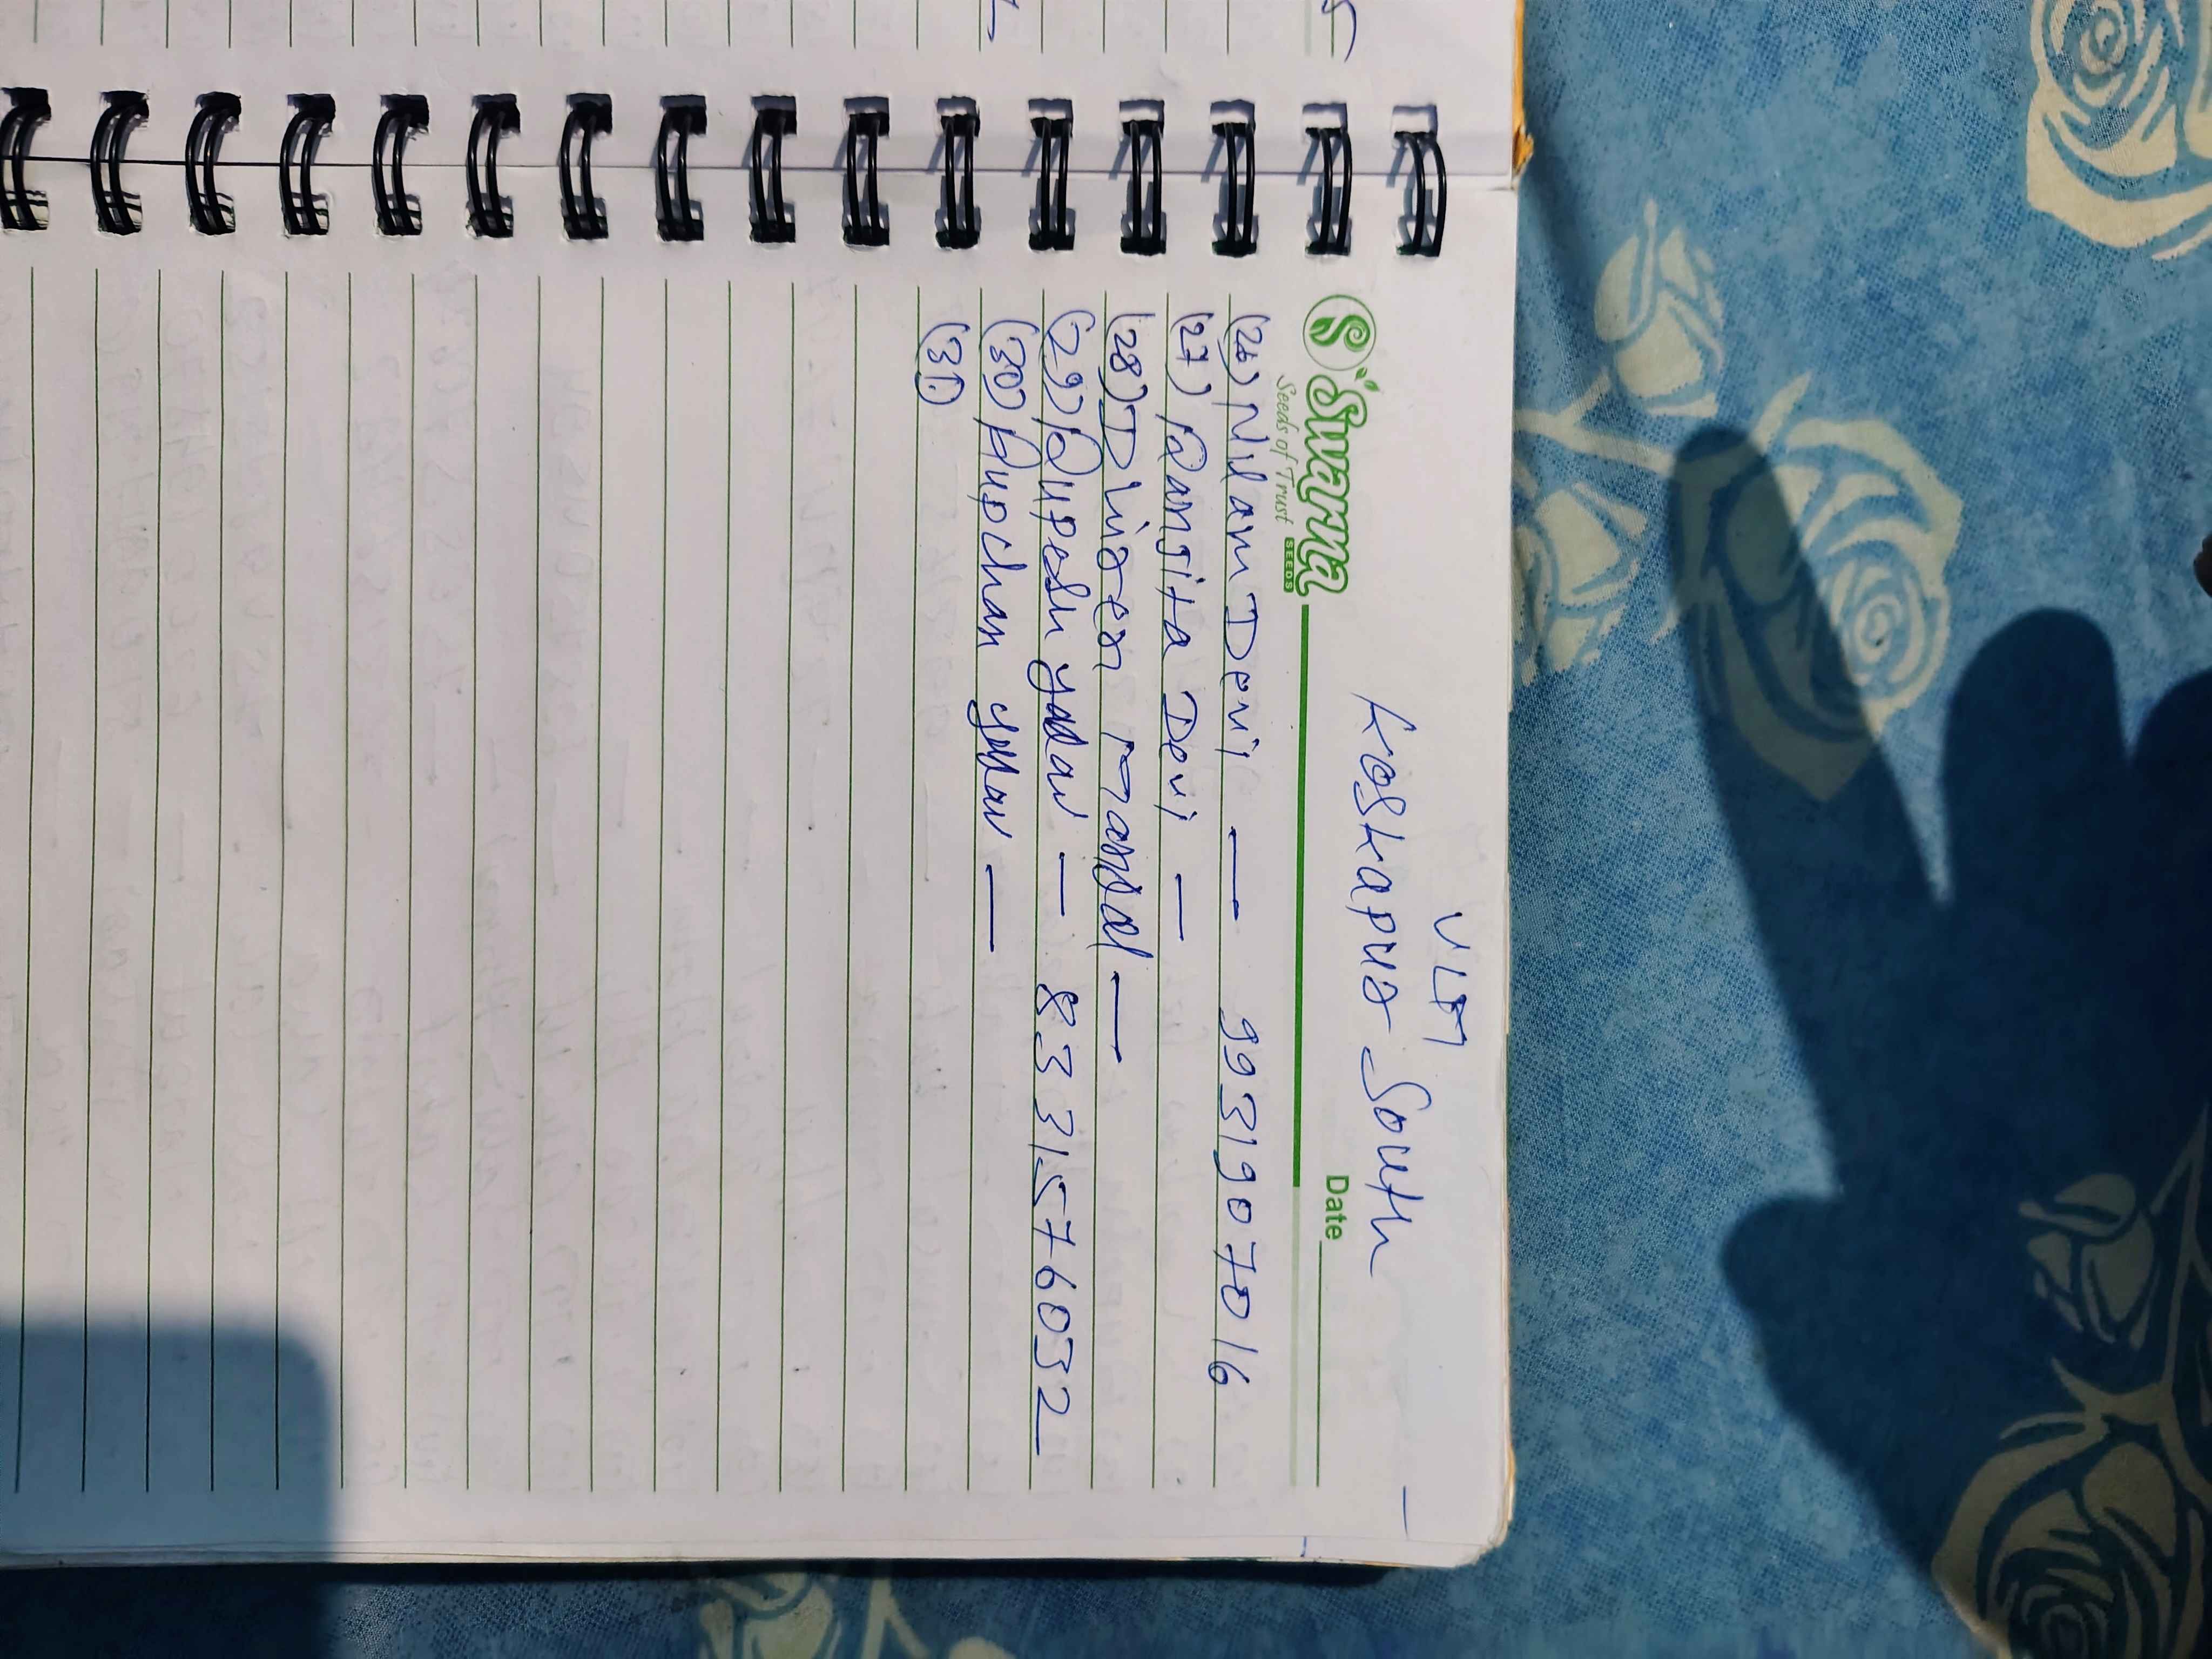 VLM
Koskapur South
Swarna
Seeds of Trust SEEDS
Date
(26) Nilam Devi — 9931907016
(27) Ranjita Devi —
(28) Dhiren mandal —
(29) Rupesh yadav — 8331576032
(30) Rupchan yadav —
(31)